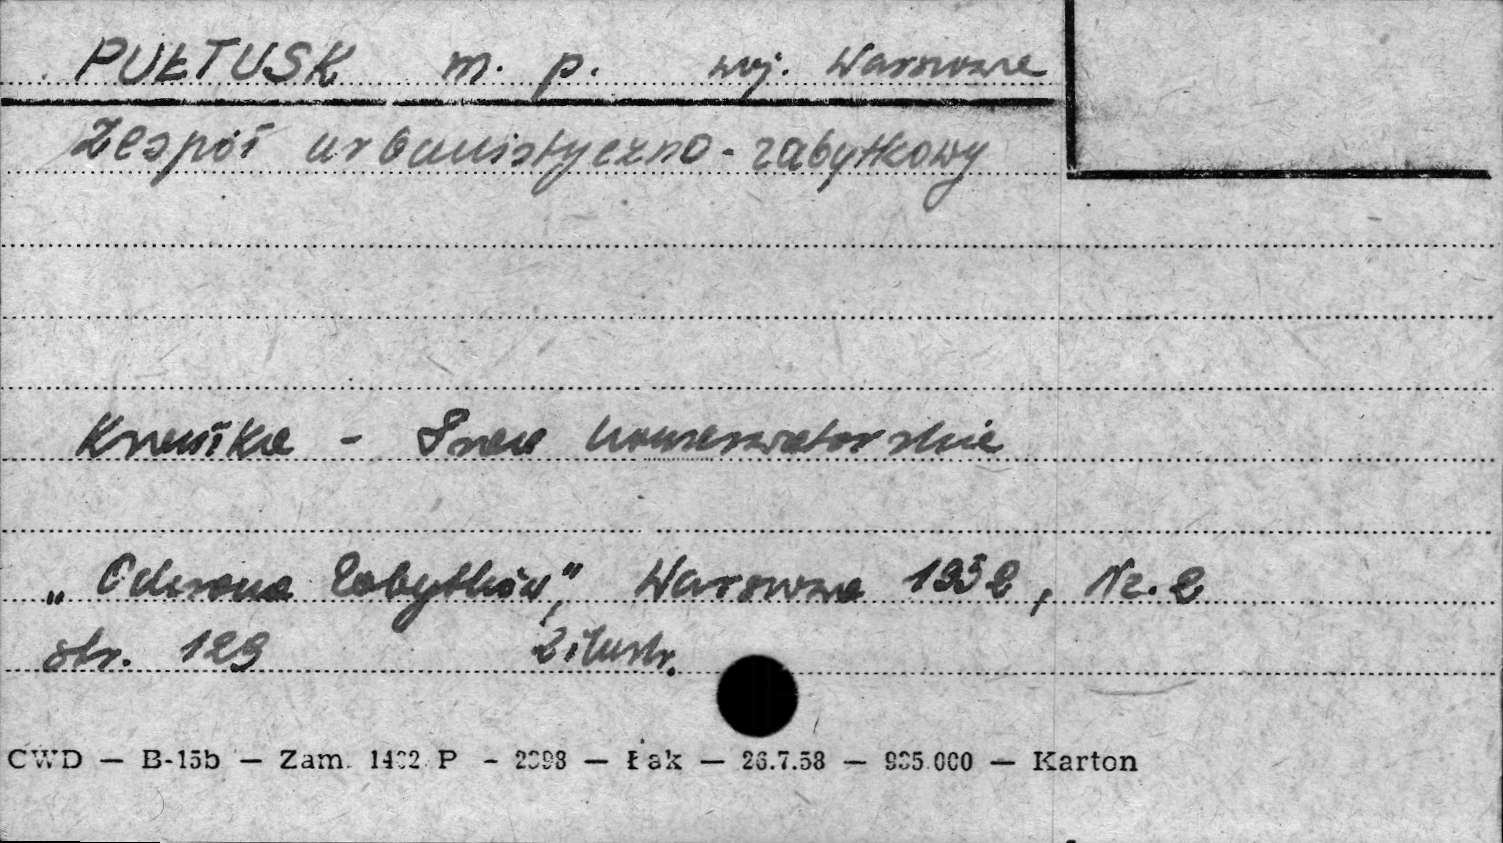 PUŁTUSK m. p. woj. Warszawa
Zespół urbanistyczno-zabytkowy
Kronika - Prace konserwatorskie
„Ochrona Zabytków”, Warszawa 1952, Nr. 2
str. 129 2 ilustr.
CWD — B-15b — Zam. P - — Łak — 26.7.58 — — Karton